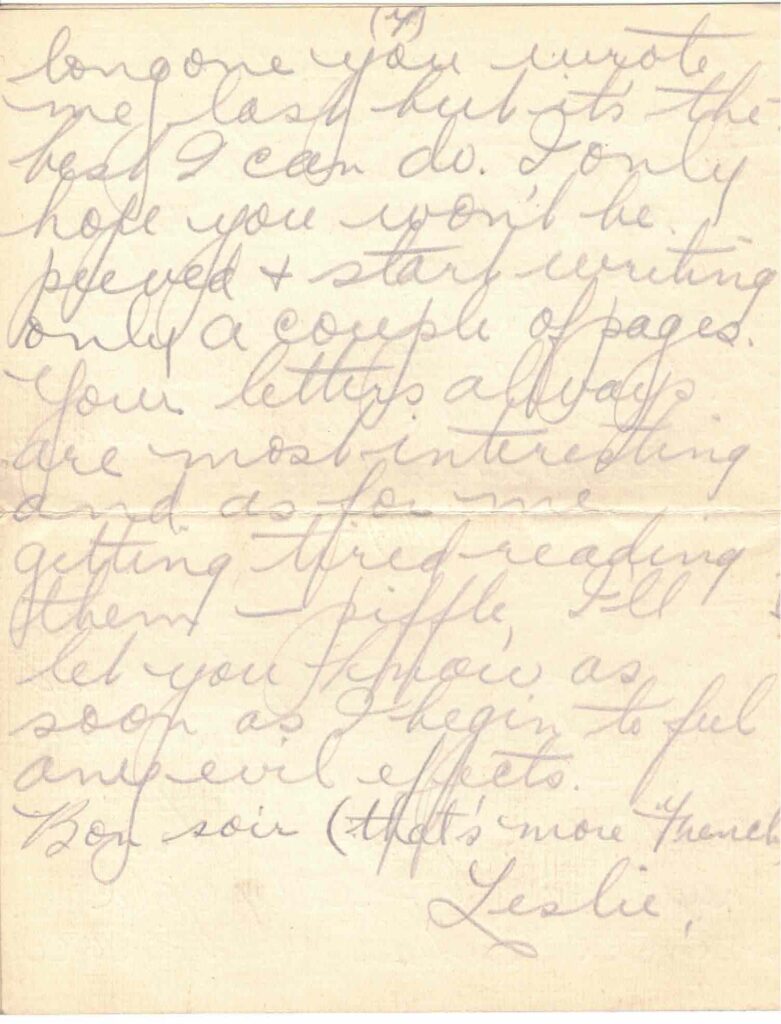 (7)
long one you wrote
me last but it's the
best I can do. I only
hope you won't be
peeved + start writing
only a couple of pages.
Your letters always
are most interesting
and as for me
getting tired reading
them — piffle, I'll
let you know as
soon as I begin to feel
any evil effects.
Bon soir (that's more French
Leslie,